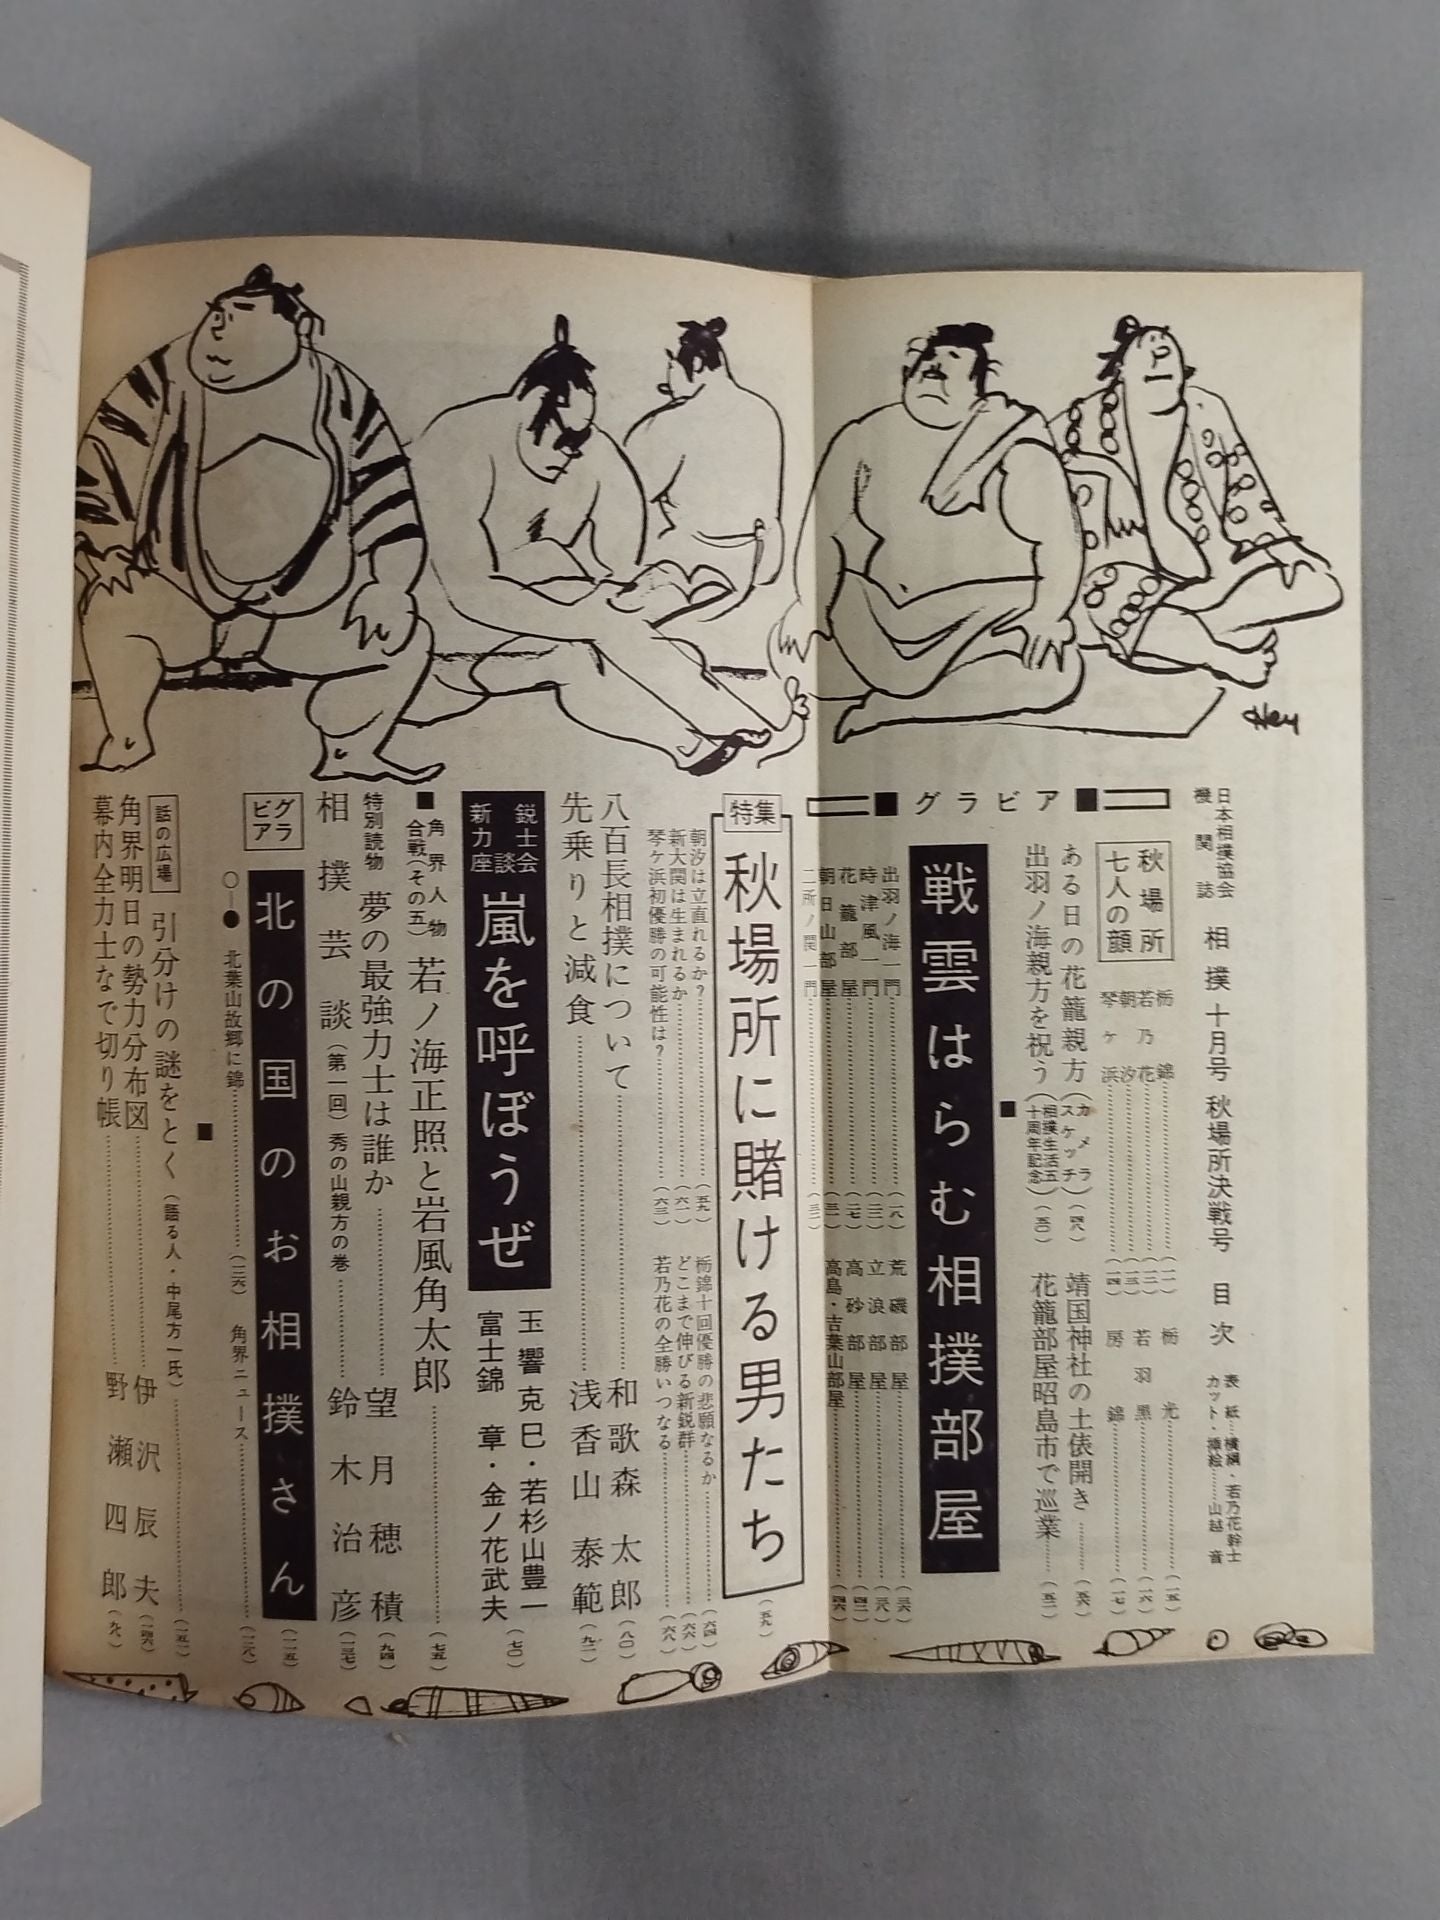 日本相撲協会
機関誌
相撲十月号 秋場所決戦号 目次
表紙…横綱・若乃花幹士
カット・挿絵……山越音
■グラビア■
秋場所
七人の顔
栃錦
若乃花
朝汐
琴ケ浜
栃光
若羽黒
房錦
ある日の花籠親方(カメラスケッチ)
出羽ノ海親方を祝う(相撲生活五十周年記念)
靖国神社の土俵開き
花籠部屋昭島市で巡業
戦雲はらむ相撲部屋
出羽ノ海一門
時津風一門
花籠部屋
朝日山部屋
二所ノ関一門
荒磯部屋
立浪部屋
高砂部屋
高島・吉葉山部屋
特集
秋場所に賭ける男たち
朝汐は立直れるか?
新大関は生まれるか
琴ケ浜初優勝の可能性は?
栃錦十回優勝の悲願なるか
どこまで伸びる新鋭群
若乃花の全勝いつなる
八百長相撲について……和歌森太郎(八〇)
先乗りと減食……浅香山泰範
新鋭力士座談会
嵐を呼ぼうぜ
玉響克巳・若杉山豊一
富士錦章・金ノ花武夫(七〇)
■角界人物合戦(その五) 若ノ海正照と岩風角太郎……(七五)
特別読物 夢の最強力士は誰か……望月穂積(九四)
相撲芸談(第一回)秀の山親方の巻……鈴木治彦
グラビア
北の国のお相撲さん
○―● 北葉山故郷に錦
角界ニュース
■
話の広場
引分けの謎をとく(語る人・中尾方一氏)
角界明日の勢力分布図……伊沢辰夫
幕内全力士なで切り帳……野瀬四郎